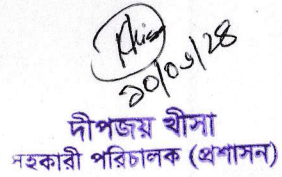 ২০/০১/২৪
দীপজয় খীসা
সহকারী পরিচালক (প্রশাসন)